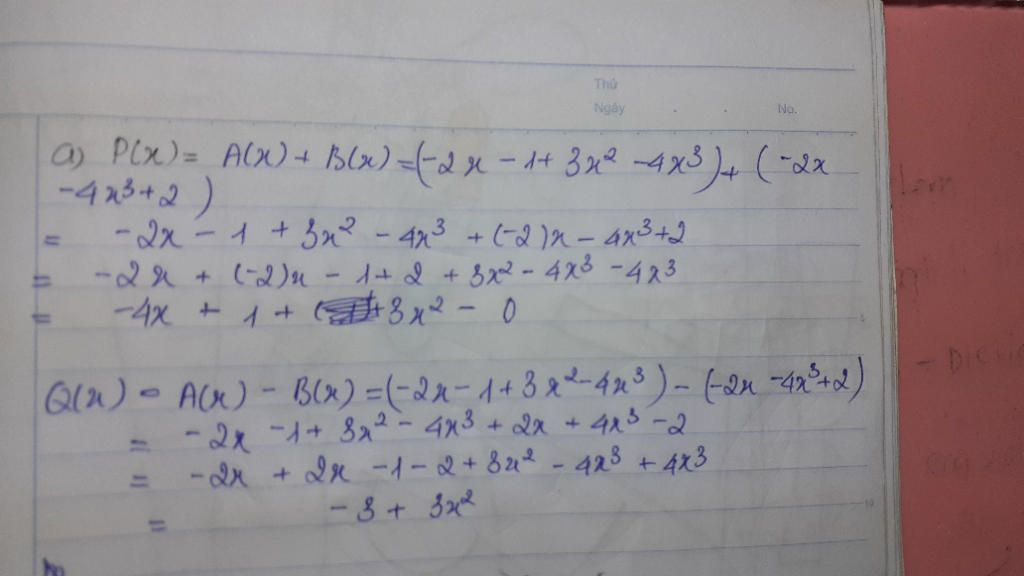 Thứ
Ngày . . No.
a) P(x) = A(x) + B(x) = (-2x - 1 + 3x² - 4x³) + (-2x
-4x³+2)
= -2x - 1 + 3x² - 4x³ + (-2)x - 4x³+2
= -2x + (-2)x - 1 + 2 + 3x² - 4x³ - 4x³
= -4x + 1 + 3x² - 0
Q(x) = A(x) - B(x) = (-2x - 1 + 3x² - 4x³) - (-2x - 4x³+2)
= -2x - 1 + 3x² - 4x³ + 2x + 4x³ - 2
= -2x + 2x - 1 - 2 + 3x² - 4x³ + 4x³
= -3 + 3x²